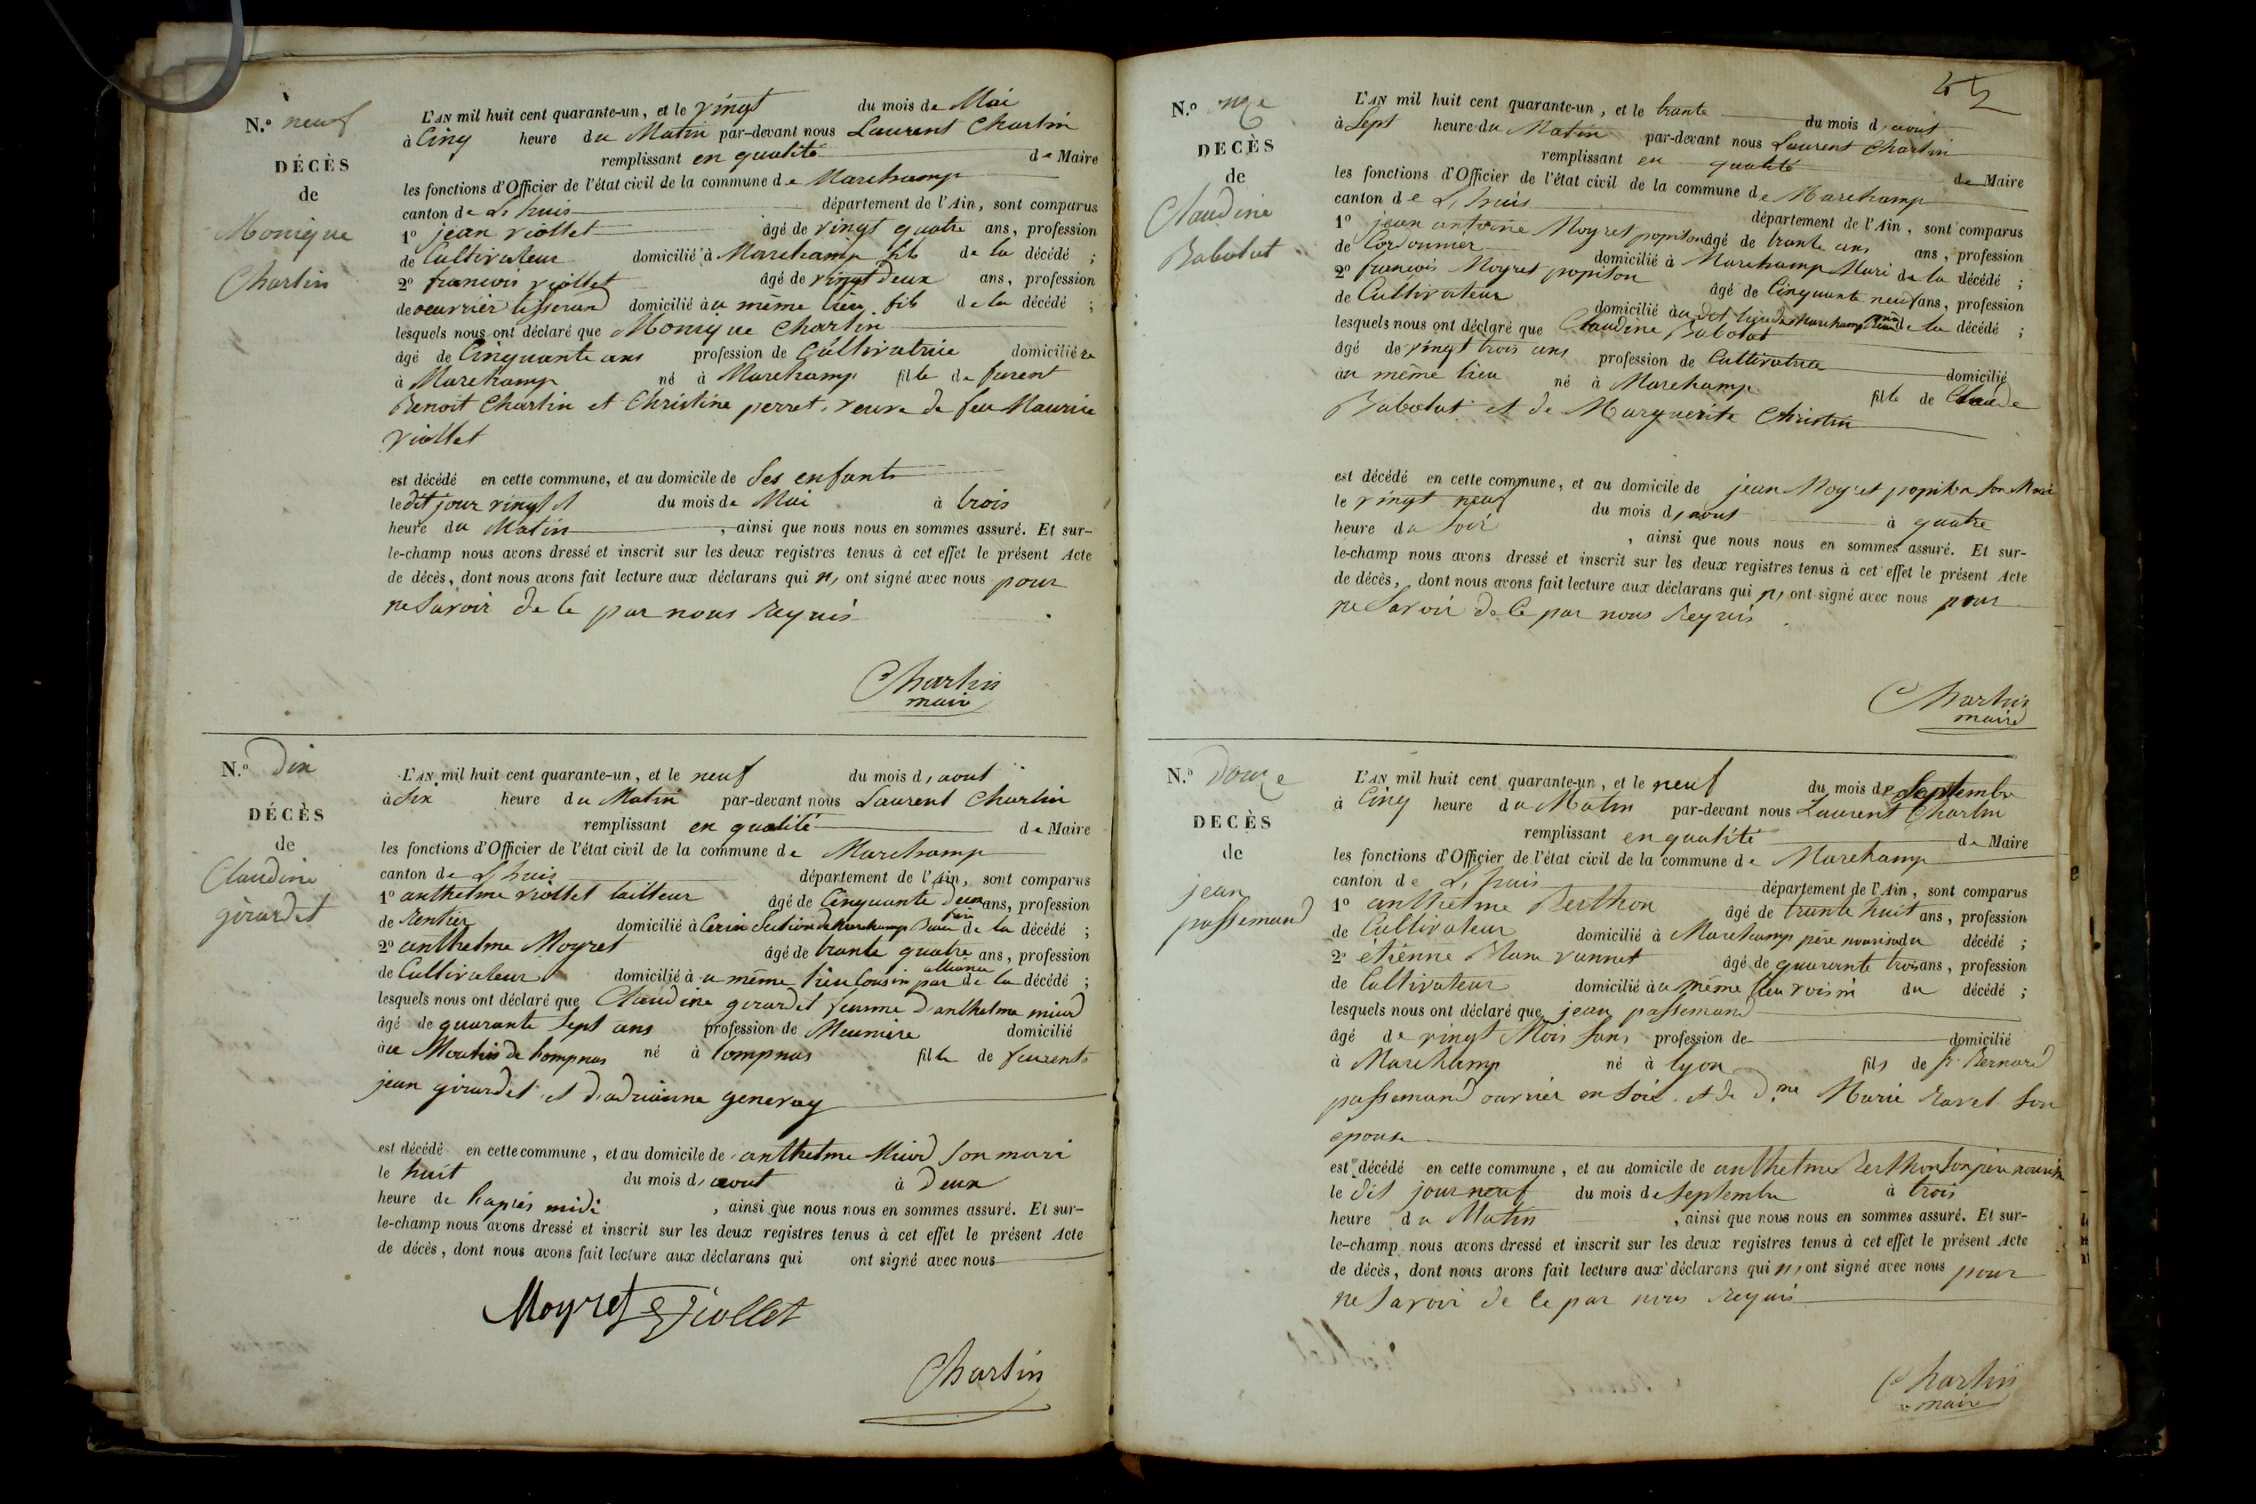 N.º neuf
DÉCÈS
de
Monique
Charlin
L'AN mil huit cent quarante-un, et le vingt du mois de Mai
à Cinq heure du Matin par-devant nous Laurent Charlin
remplissant en qualité de Maire
les fonctions d'Officier de l'état civil de la commune de Marchamp
canton de L, huis département de l'Ain, sont comparus
1º jean viollet âgé de vingt quatre ans, profession
de Cultivateur domicilié à Marchamp fils de la décédé ;
2º francois viollet âgé de vingt deux ans, profession
de ouvrier tisserand domicilié à u même lieu fils de la décédé ;
lesquels nous ont déclaré que Monique Charlin
âgé de Cinquante ans profession de Cultivatrice domicilié e
à Marchamp né à Marchamp fille de furent
Benoit Charlin et Christine perret, veuve de feu Maurice
viollet
est décédé en cette commune, et au domicile de Ses enfants
le dit jour vingt du mois de Mai à trois
heure du Matin , ainsi que nous nous en sommes assuré. Et sur-
le-champ nous avons dressé et inscrit sur les deux registres tenus à cet effet le présent Acte
de décès, dont nous avons fait lecture aux déclarans qui n, ont signé avec nous pour
ne Savoir de Ce par nous Requis
Charlin
maire
N.º Dix
DÉCÈS
de
Claudine
girardet
L'AN mil huit cent quarante-un, et le neuf du mois d, aout
à Six heure du Matin par-devant nous Laurent Charlin
remplissant en qualité de Maire
les fonctions d'Officier de l'état civil de la commune de Marchamp
canton de L, huis département de l'Ain, sont comparus
1º anthelme viollet tailleur âgé de Cinquante Deux ans, profession
de Rentier domicilié à Cerin Section de Marchamp Beau frère de la décédé ;
2º anthelme Moyret âgé de trante quatre ans, profession
de Cultivateur domicilié à u même lieu Cousin par alliance de la décédé ;
lesquels nous ont déclaré que Claudine girardet femme d'anthelme miard
âgé de quarante Sept ans profession de Meuniere domicilié
à u Moulin de Lompnas né à Lompnas fille de furent
jean girardet et d'adrianne generay
est décédé en cette commune, et au domicile de anthelme Miard Son mari
le huit du mois d, aout à Deux
heure de l'après midi , ainsi que nous nous en sommes assuré. Et sur-
le-champ nous avons dressé et inscrit sur les deux registres tenus à cet effet le présent Acte
de décès, dont nous avons fait lecture aux déclarans qui ont signé avec nous
Moyret Viollet
Charlin
45
N.º onze
DECÈS
de
Claudine
Babolat
L'AN mil huit cent quarante-un, et le trante du mois d, aout
à Sept heure du Matin par-devant nous Laurent Charlin
remplissant en qualité de Maire
les fonctions d'Officier de l'état civil de la commune de Marchamp
canton de L, huis département de l'Ain, sont comparus
1º jean antoine Moyret popiton âgé de trante ans ans, profession
de Cordonnier domicilié à Marchamp Mari de la décédé ;
2º francois Moyret popiton âgé de Cinquante neuf ans, profession
de Cultivateur domicilié à u dit lieu de Marchamp de la décédé ;
lesquels nous ont déclaré que Claudine Babolat
âgé de vingt trois ans profession de Cultivatrice domicilié
à u même lieu né à Marchamp fille de Claude
Babolat et de Marguerite Christin
est décédé en cette commune, et au domicile de jean Moyret popiton Son Mari
le vingt neuf du mois d, aout à quatre
heure du Soir , ainsi que nous nous en sommes assuré. Et sur-
le-champ nous avons dressé et inscrit sur les deux registres tenus à cet effet le présent Acte
de décès, dont nous avons fait lecture aux déclarans qui n, ont signé avec nous pour
ne Savoir de Ce par nous Requis
Charlin
maire
N.º Douze
DECÈS
de
jean
passemard
L'AN mil huit cent quarante-un, et le neuf du mois de Septembre
à Cinq heure du Matin par-devant nous Laurent Charlin
remplissant en qualité de Maire
les fonctions d'Officier de l'état civil de la commune de Marchamp
canton de L, huis département de l'Ain, sont comparus
1º anthelme Berthon âgé de trante huit ans, profession
de Cultivateur domicilié à Marchamp père nourisa du décédé ;
2º étienne vannet âgé de quarante trois ans, profession
de Cultivateur domicilié à u même lieu voisin du décédé ;
lesquels nous ont déclaré que jean passemard
âgé de vingt Mois Sans profession de domicilié
à Marchamp né à Lyon fils de Sr Bernard
passemard ouvrier en Soie et de Dme Marie Ravel Son
epouse
est décédé en cette commune, et au domicile de anthelme Berthon Son père
le dit jour neuf du mois de Septembre à trois
heure du Matin , ainsi que nous nous en sommes assuré. Et sur-
le-champ nous avons dressé et inscrit sur les deux registres tenus à cet effet le présent Acte
de décès, dont nous avons fait lecture aux déclarans qui n, ont signé avec nous pour
ne Savoir de Ce par nous Requis
Charlin
maire